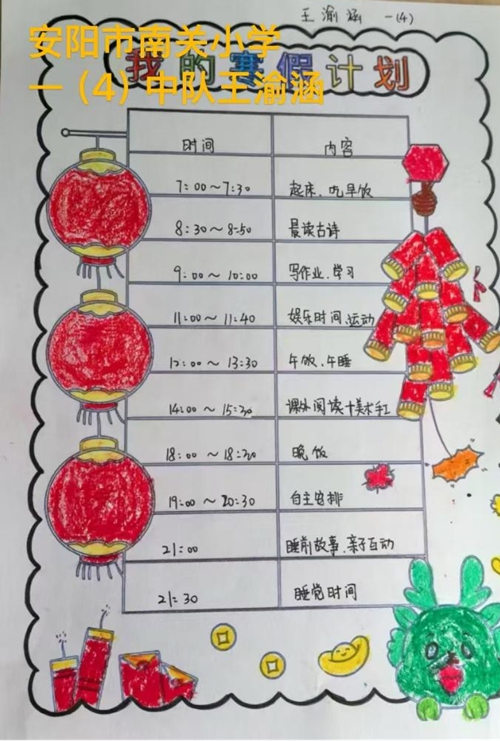 王渝涵 一(4)
安阳市南关小学
一（4）中队王渝涵
我的寒假计划
时间 内容
7:00～7:30 起床、吃早饭
8:30～8:50 晨读古诗
9:00～10:00 写作业、学习
11:00～11:40 娱乐时间、运动
12:00～13:30 午饭、午睡
14:00～15:30 课外阅读十美术手工
18:00～18:30 晚饭
19:00～20:30 自主安排
21:00 睡前故事、亲子互动
21:30 睡觉时间